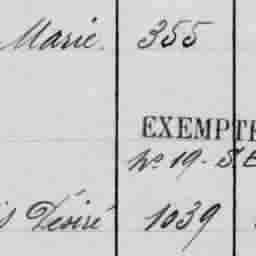 Marie 355
EXEMPTE
No 19. S.E
Désiré 1039